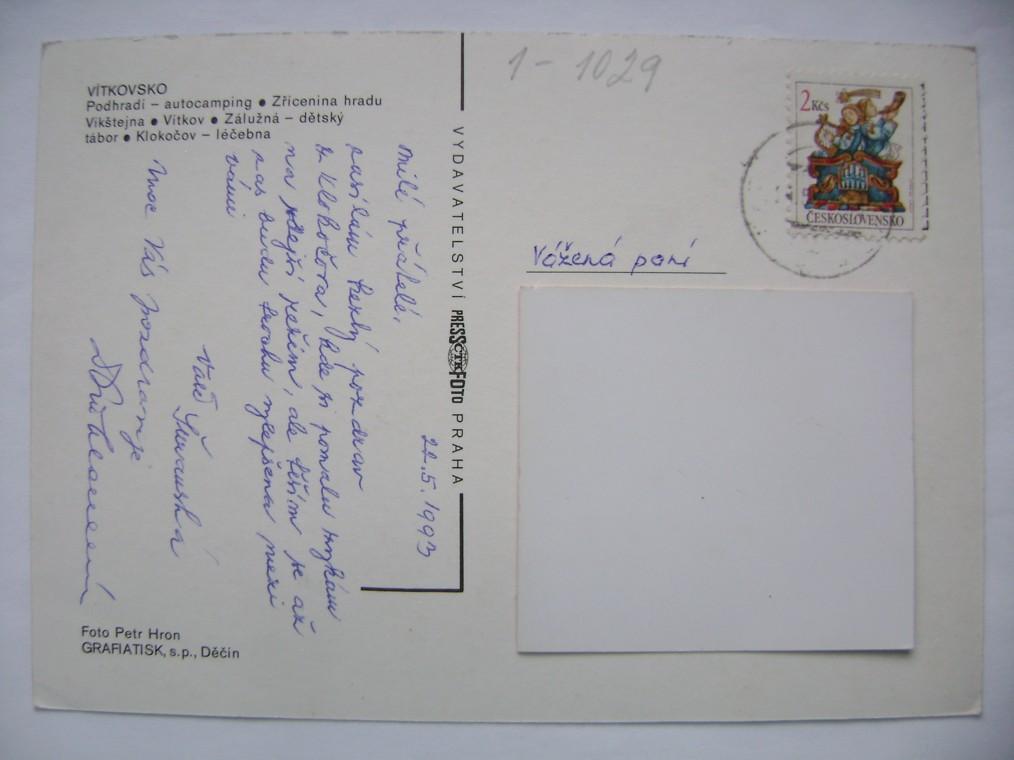 VÍTKOVSKO
Podhradí – autocamping ● Zřícenina hradu
Vikštejna ● Vítkov ● Zálužná – dětský
tábor ● Klokočov – léčebna
22.5.1993
Milí přátelé,
zasílám hezký pozdrav
z Klokočova, kde si pomalu zvykám
na zdejší režim, ale těším se až
zas budu trochu vylepšena mezi
vámi
Vaše
Moc Vás pozdravuje
Foto Petr Hron
GRAFIATISK, s.p., Děčín
VYDAVATELSTVÍ PRESSFOTO PRAHA
ČTK
1 – 1029
2 Kčs
ČESKOSLOVENSKO
Vážená paní